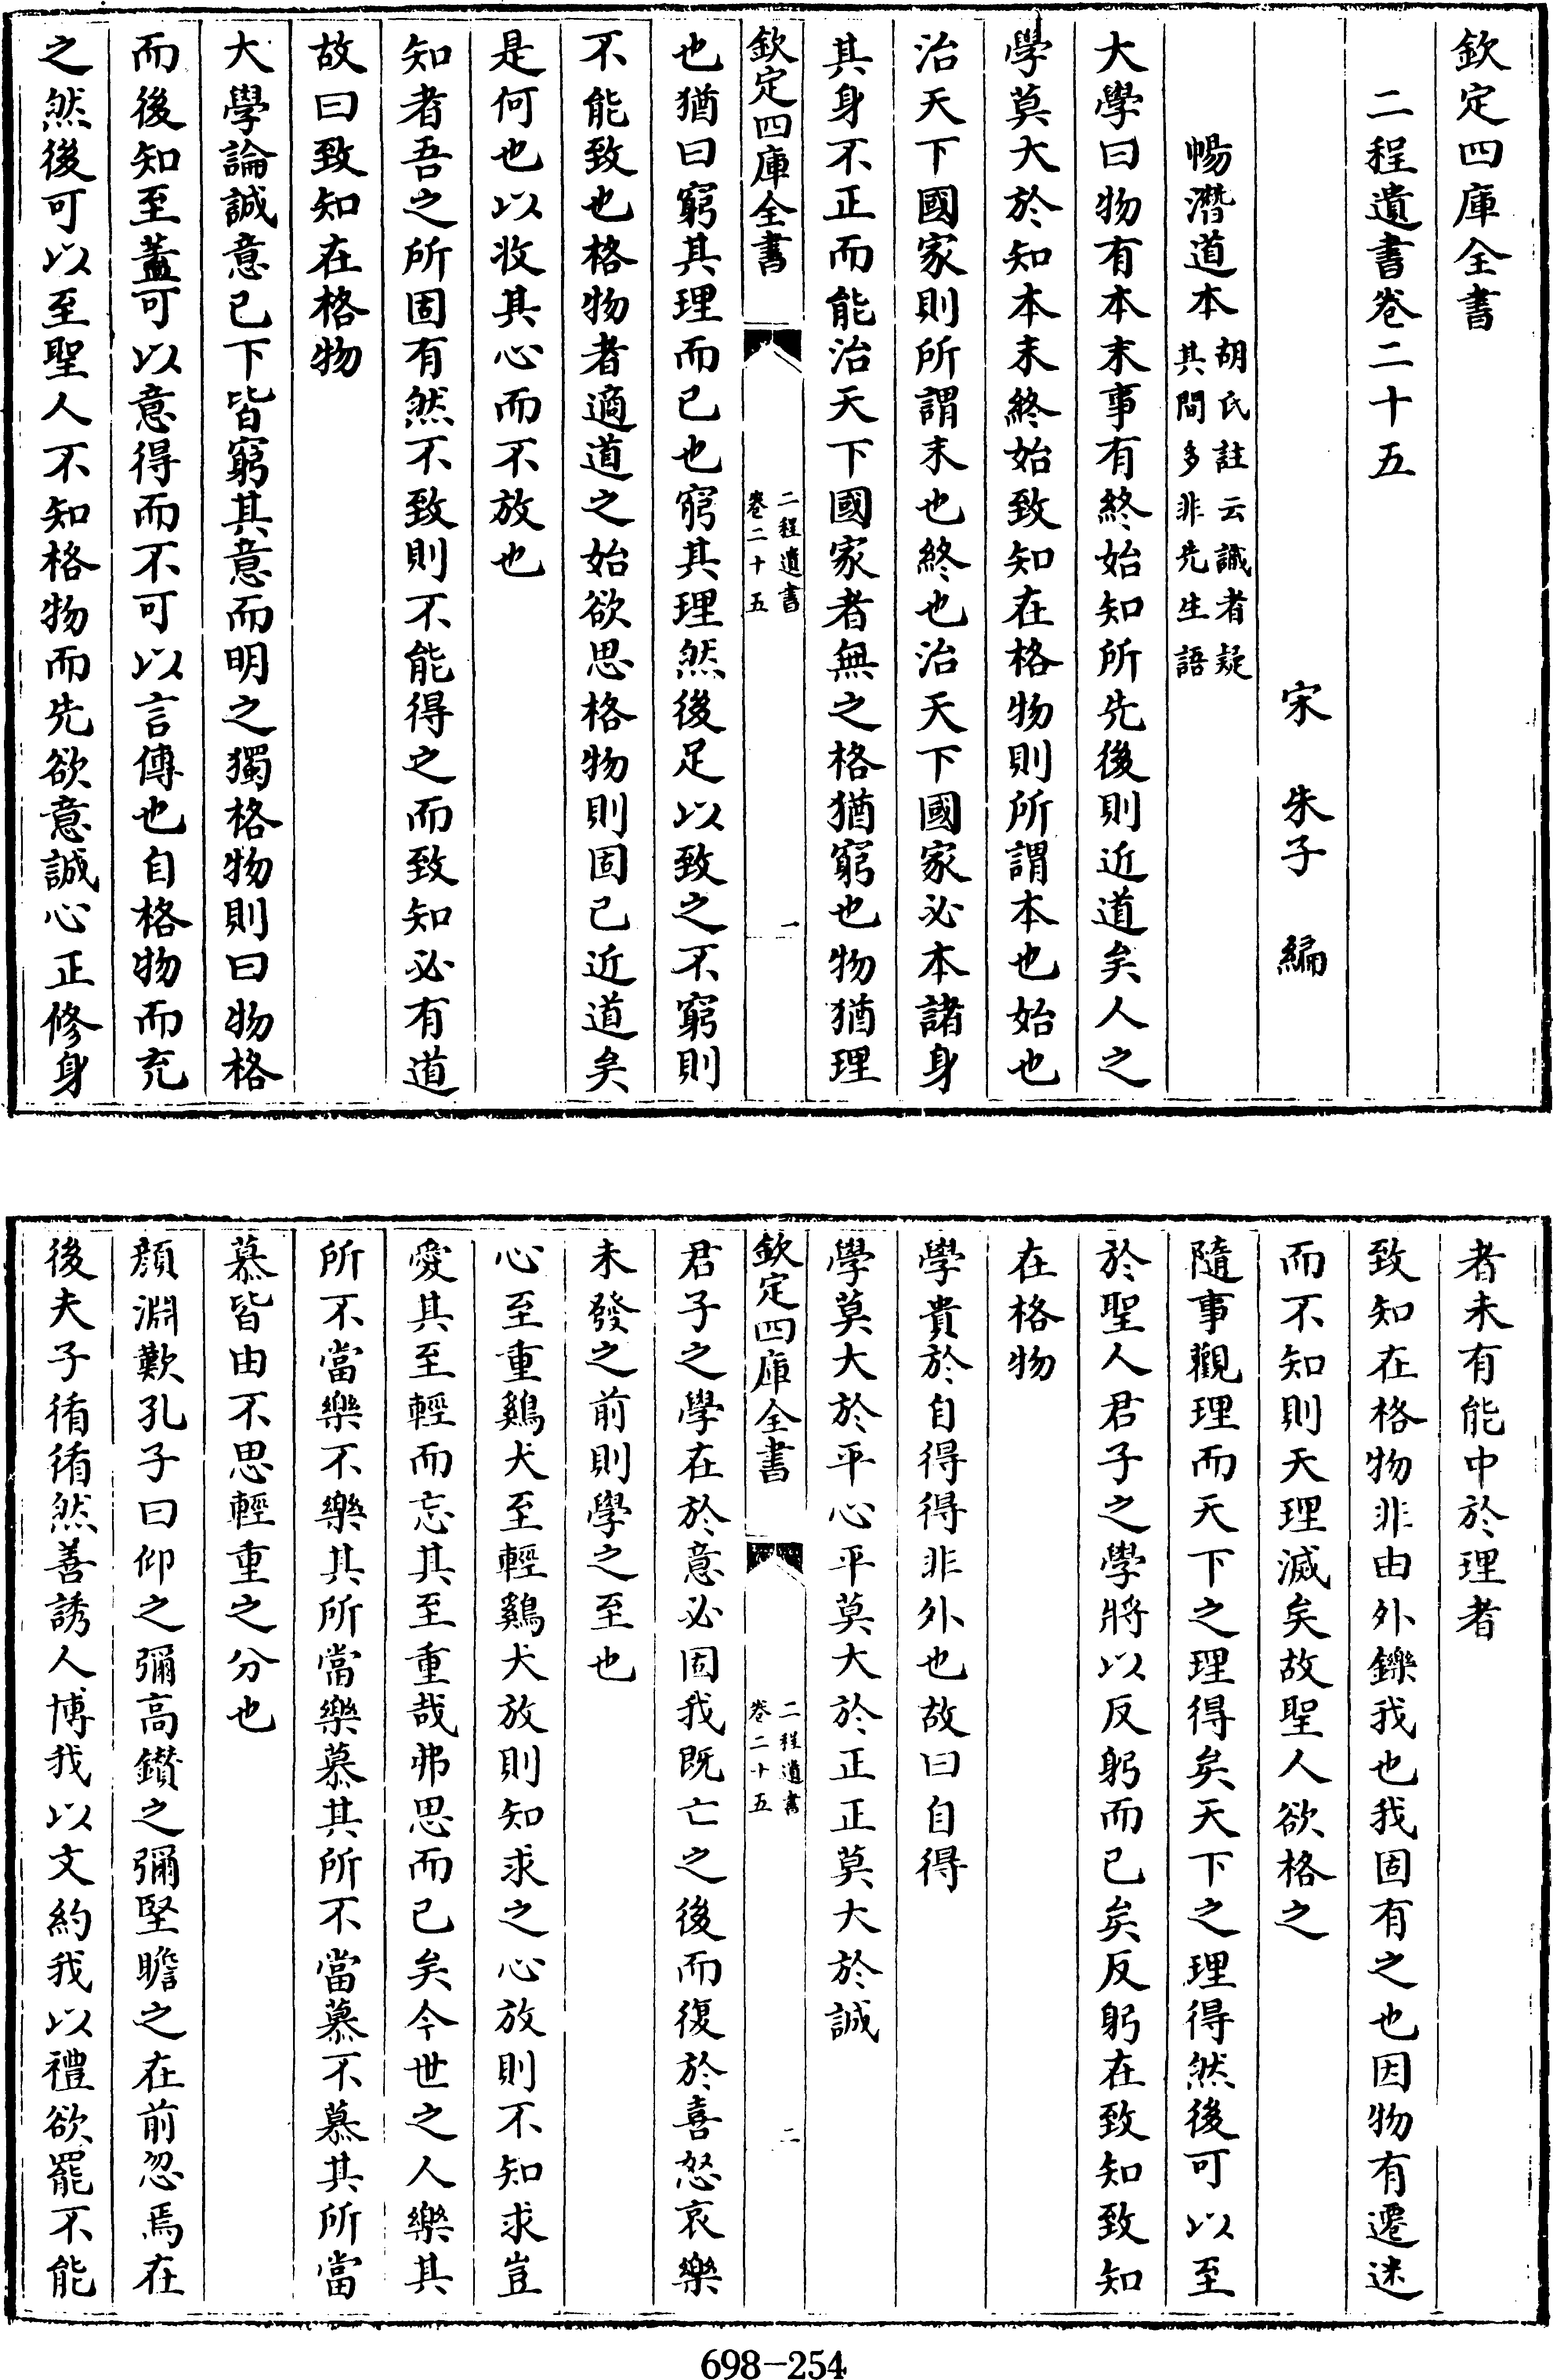 欽定四庫全書
二程遺書卷二十五
宋 朱子 編
暢潛道本胡氏註云識者疑其間多非先生語
大學曰物有本末事有終始知所先後則近道矣人之
學莫大於知本末終始致知在格物則所謂本也始也
治天下國家則所謂末也終也治天下國家必本諸身
其身不正而能治天下國家者無之格猶窮也物猶理
欽定四庫全書 二程遺書卷二十五 一
也猶曰窮其理而已也窮其理然後足以致之不窮則
不能致也格物者適道之始欲思格物則固已近道矣
是何也以收其心而不放也
知者吾之所固有然不致則不能得之而致知必有道
故曰致知在格物
大學論誠意已下皆窮其意而明之獨格物則曰物格
而後知至蓋可以意得而不可以言傳也自格物而充
之然後可以至聖人不知格物而先欲意誠心正修身
者未有能中於理者
致知在格物非由外鑠我也我固有之也因物有遷迷
而不知則天理滅矣故聖人欲格之
隨事觀理而天下之理得矣天下之理得然後可以至
於聖人君子之學將以反躬而已矣反躬在致知致知
在格物
學貴於自得得非外也故曰自得
學莫大於平心平莫大於正正莫大於誠
欽定四庫全書 二程遺書卷二十五 二
君子之學在於意必固我既亡之後而復於喜怒哀樂
未發之前則學之至也
心至重鷄犬至輕鷄犬放則知求之心放則不知求豈
愛其至輕而忘其至重哉弗思而已矣今世之人樂其
所不當樂不樂其所當樂慕其所不當慕不慕其所當
慕皆由不思輕重之分也
顏淵歎孔子曰仰之彌高鑽之彌堅瞻之在前忽焉在
後夫子循循然善誘人博我以文約我以禮欲罷不能
698-254